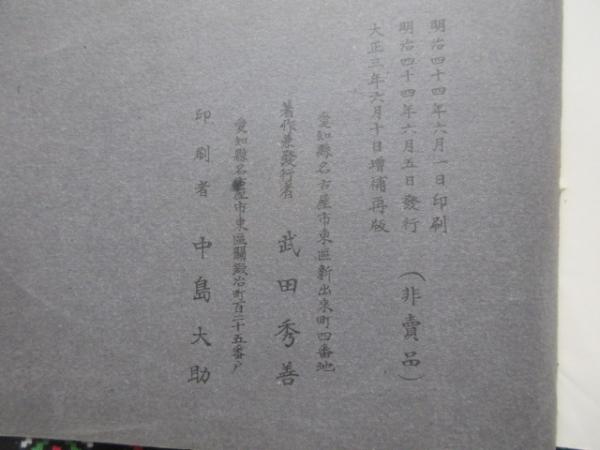 明治四十四年六月一日印刷
明治四十四年六月五日發行
(非賣品)
大正三年六月十日增補再版
愛知縣名古屋市東區新出來町四番地
著作兼發行者 武田秀善
愛知縣名古屋市東區關鍛冶町百二十五番戶
印刷者 中島大助